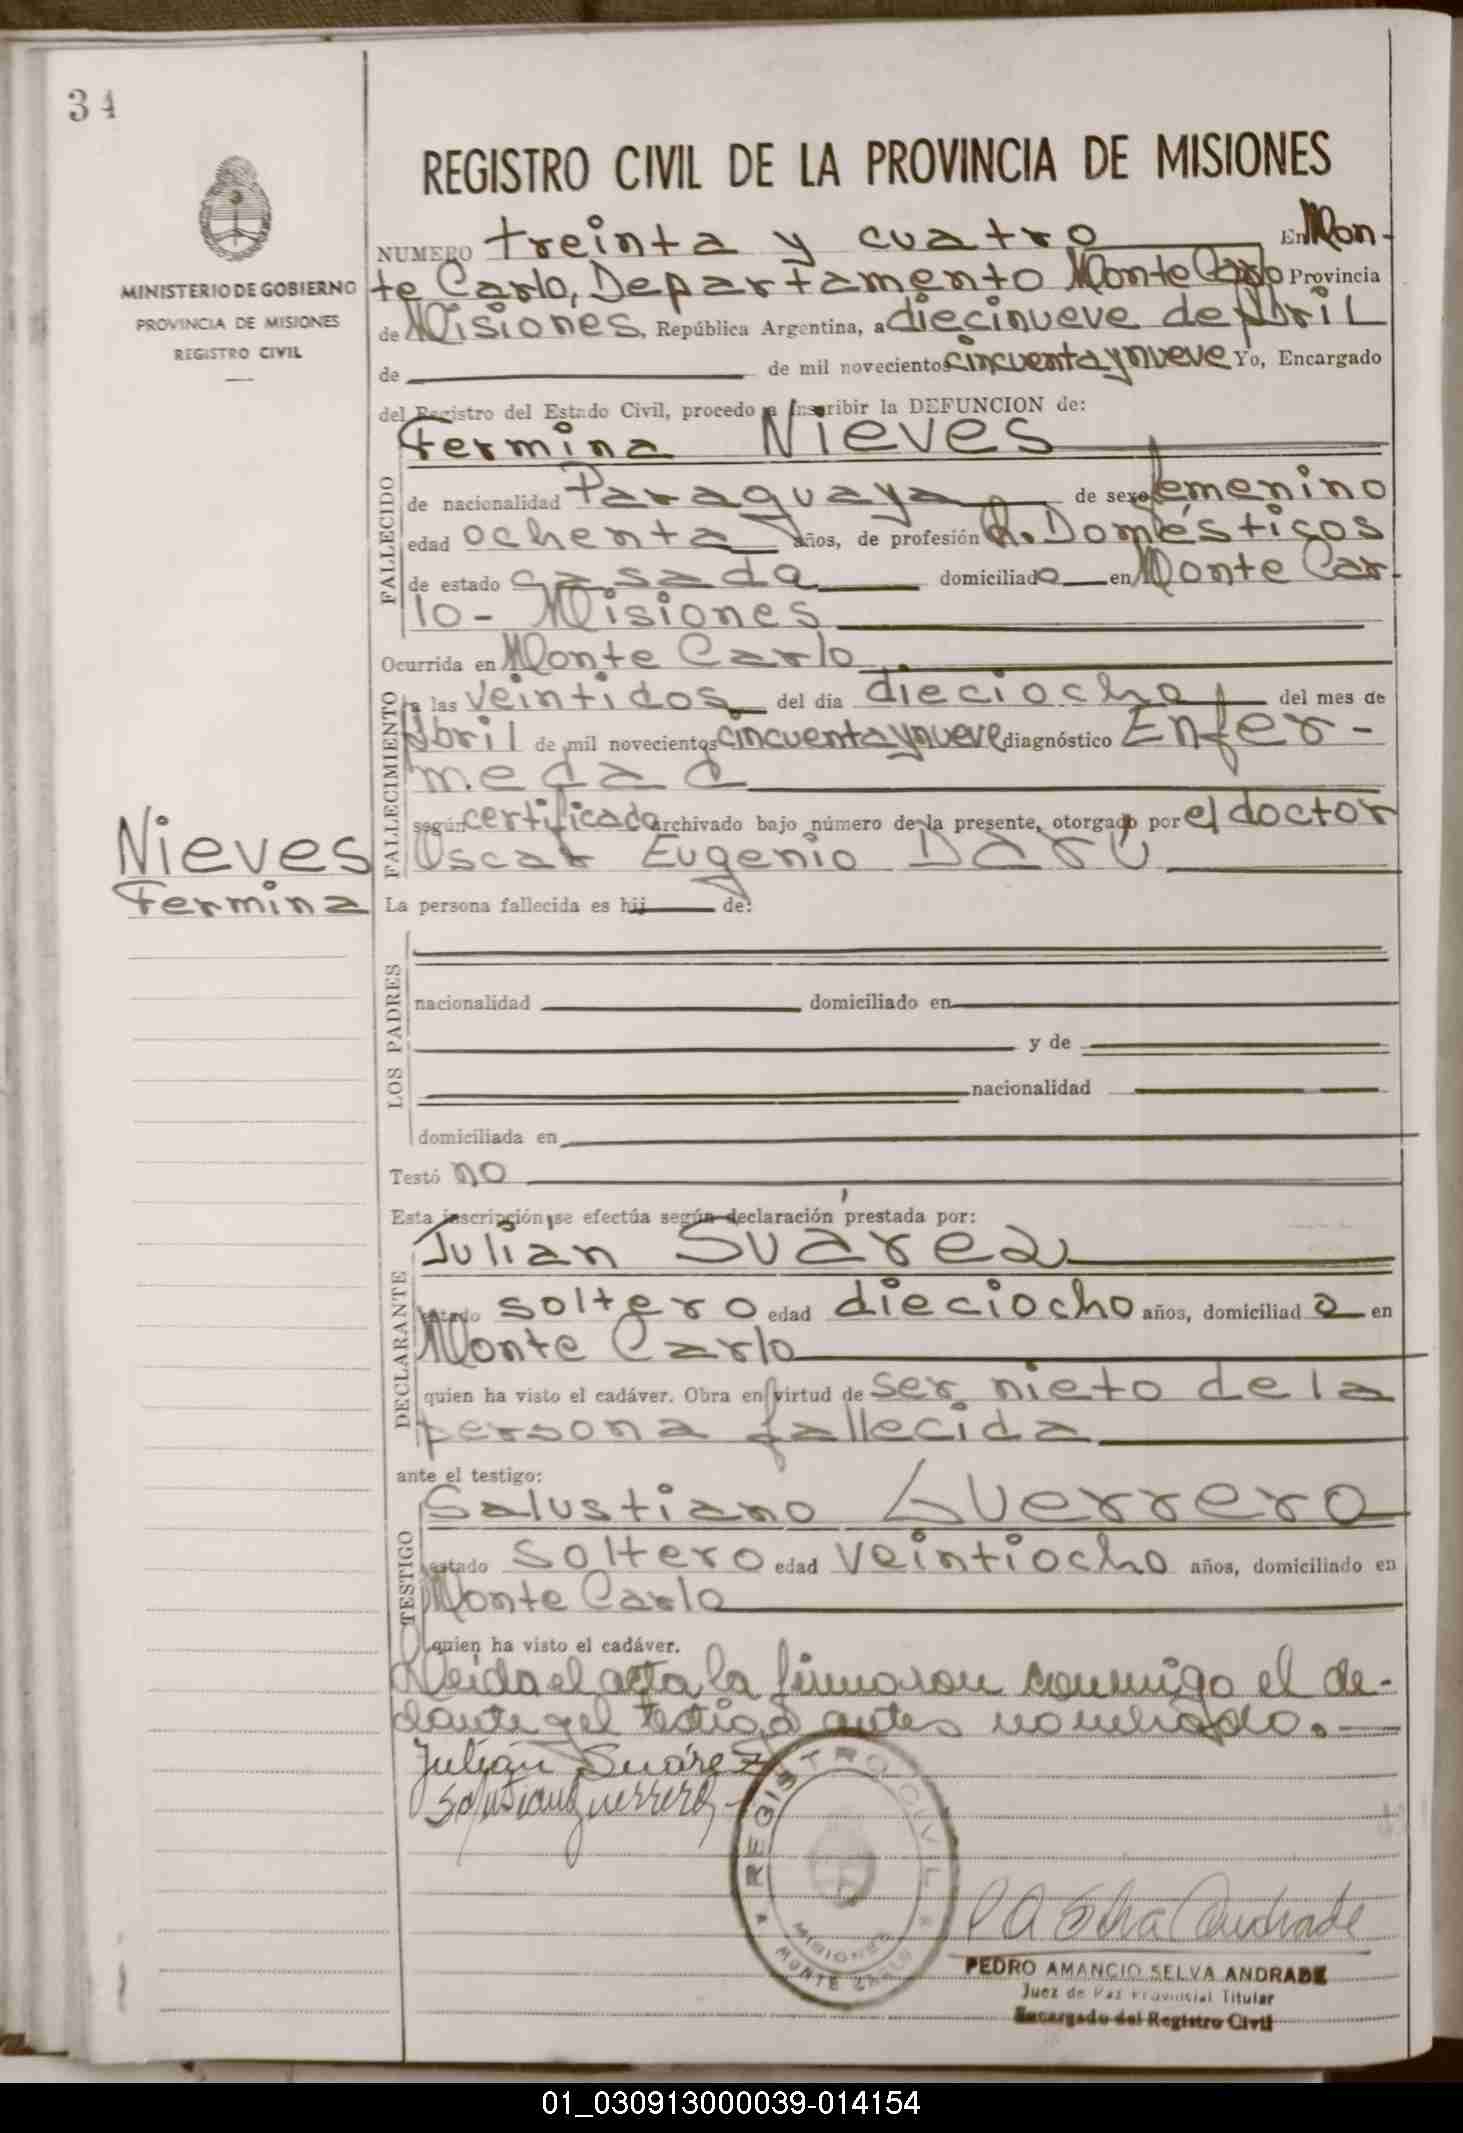 34
MINISTERIO DE GOBIERNO
PROVINCIA DE MISIONES
REGISTRO CIVIL
REGISTRO CIVIL DE LA PROVINCIA DE MISIONES
NUMERO treinta y cuatro En Mon-
te Carlo, Departamento Monte Carlo Provincia
de Misiones, República Argentina, a diecinueve de Abril
de de mil novecientos cincuenta y nueve Yo, Encargado
del Registro del Estado Civil, procedo a inscribir la DEFUNCION de:
Fermina Nieves
FALLECIDO
de nacionalidad Paraguaya de sexo femenino
edad ochenta años, de profesión Q. Domésticos
de estado casada domiciliado en Monte Car-
lo - Misiones
Ocurrida en Monte Carlo
FALLECIMIENTO
a las veintidos del dia dieciocho del mes de
Abril de mil novecientos cincuenta y nueve diagnóstico Enfer-
medad
según certificado archivado bajo número de la presente, otorgado por el doctor
Oscar Eugenio Darú
Nieves
Fermina
La persona fallecida es hij de:
LOS PADRES
nacionalidad domiciliado en
y de
nacionalidad
domiciliada en
Testó no
Esta inscripción se efectúa según declaración prestada por:
Julian Suárez
DECLARANTE
estado soltero edad dieciocho años, domiciliad o en
Monte Carlo
quien ha visto el cadáver. Obra en virtud de ser nieto de la
persona fallecida
ante el testigo:
Salustiano Guerrero
TESTIGO
estado soltero edad veintiocho años, domiciliado en
Monte Carlo
quien ha visto el cadáver.
Leida el acta la firmaron conmigo el de-
clarante y el testigo antes nombrado.
Julián Suárez
Salustiano Guerrero
REGISTRO CIVIL
MISIONES
MONTE CARLO
P A Selva Andrade
PEDRO AMANCIO SELVA ANDRADE
Juez de Paz Provincial Titular
Encargado del Registro Civil
01_030913000039-014154